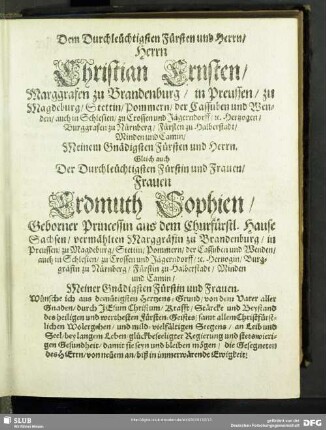 Dem Durchleüchtigsten Fürsten und Herrn/
Herrn
Christian Ernsten/
Marggrafen zu Brandenburg/ in Preussen/ zu
Magdeburg/ Stettin/ Pommern/ der Cassuben und Wen-
den/ auch in Schlesien/ zu Crossen und Jägerndorff/ ꝛc. Hertzogen/
Burggrafen zu Nürnberg/ Fürsten zu Halberstadt/
Minden und Camin/
Meinem Gnädigsten Fürsten und Herrn.
Gleich auch
Der Durchleüchtigsten Fürstin und Frauen/
Frauen
Erdmuth Sophien/
Geborner Princessin aus dem Churfürstl. Hause
Sachsen/ vermählten Marggräfin zu Brandenburg/ in
Preussen/ zu Magdeburg/ Stettin/ Pommern/ der Cassuben und Wenden/
auch in Schlesien/ zu Crossen und Jägerndorff/ ꝛc. Hertzogin/ Burg-
gräfin zu Nürnberg/ Fürstin zu Halberstadt/ Minden
und Camin/
Meiner Gnädigsten Fürstin und Frauen.
Wünsche ich aus demütigstem Hertzens-Grund/ von dem Vater aller
Gnaden/ durch JEsum Christum/ Krafft/ Stärcke und Beystand
des heiligen und werthesten Fürsten-Geistes/ samt allem Christfürst-
lichen Wolergehen/ und mild-vielfältigen Seegen/ an Leib und
Seel/ bey langem Leben glückbeseeligter Regierung und stetswieri-
gen Gesundheit/ damit sie seyen und bleiben mögen/ die Gesegneten
des HErrn/ von nun an/ biß in immerwärende Ewigkeit;
SLUB
Wir führen Wissen.
gefördert von der
Deutschen Forschungsgemeinschaft